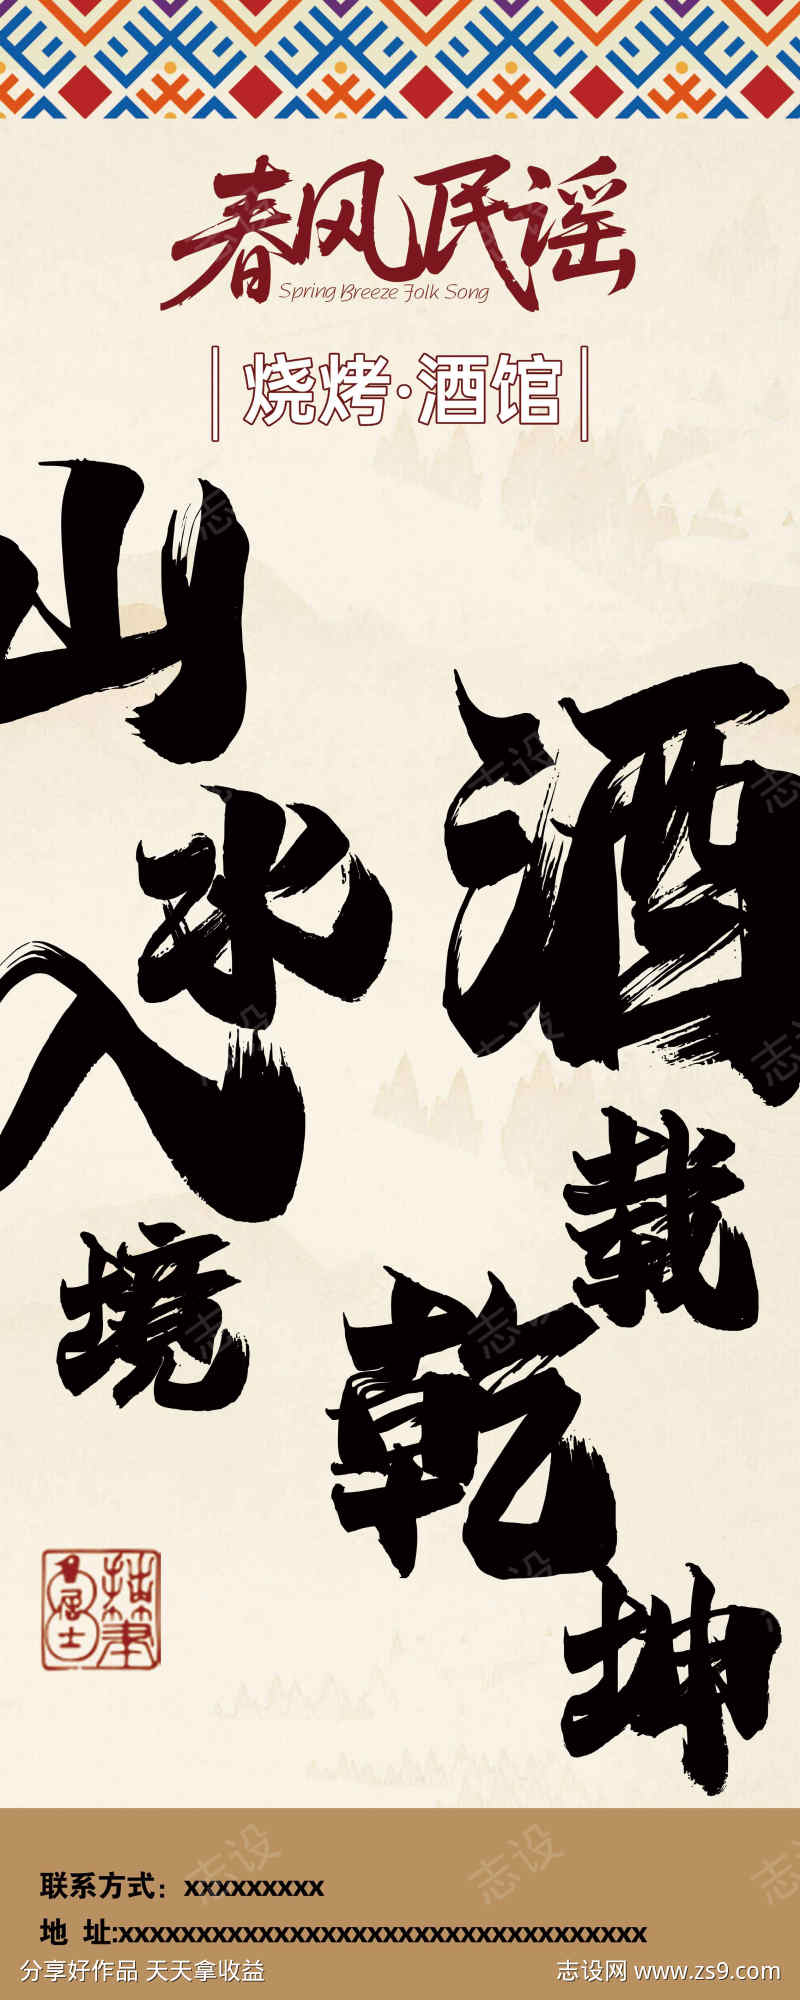 春风民谣
Spring Breeze Folk Song
烧烤·酒馆
酒载乾坤
山水入境
拙笔居士
联系方式：xxxxxxxxx
地 址:xxxxxxxxxxxxxxxxxxxxxxxxxxxxxxxxxx
分享好作品 天天拿收益
志设网 www.zs9.com
志设